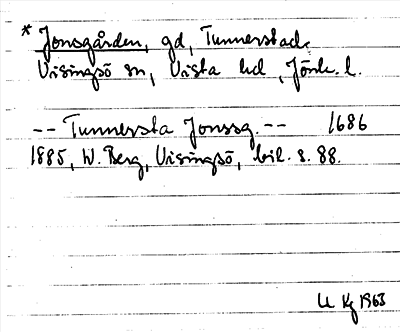 * Jonsgården, gd, Tunnerstad,
Visingsö sn, Vista hd, Jönk. l.
-- Tunnersta Jonssg. -- 1686
1885, W. Berg, Visingsö, bil. s. 88.
U Kg 1963